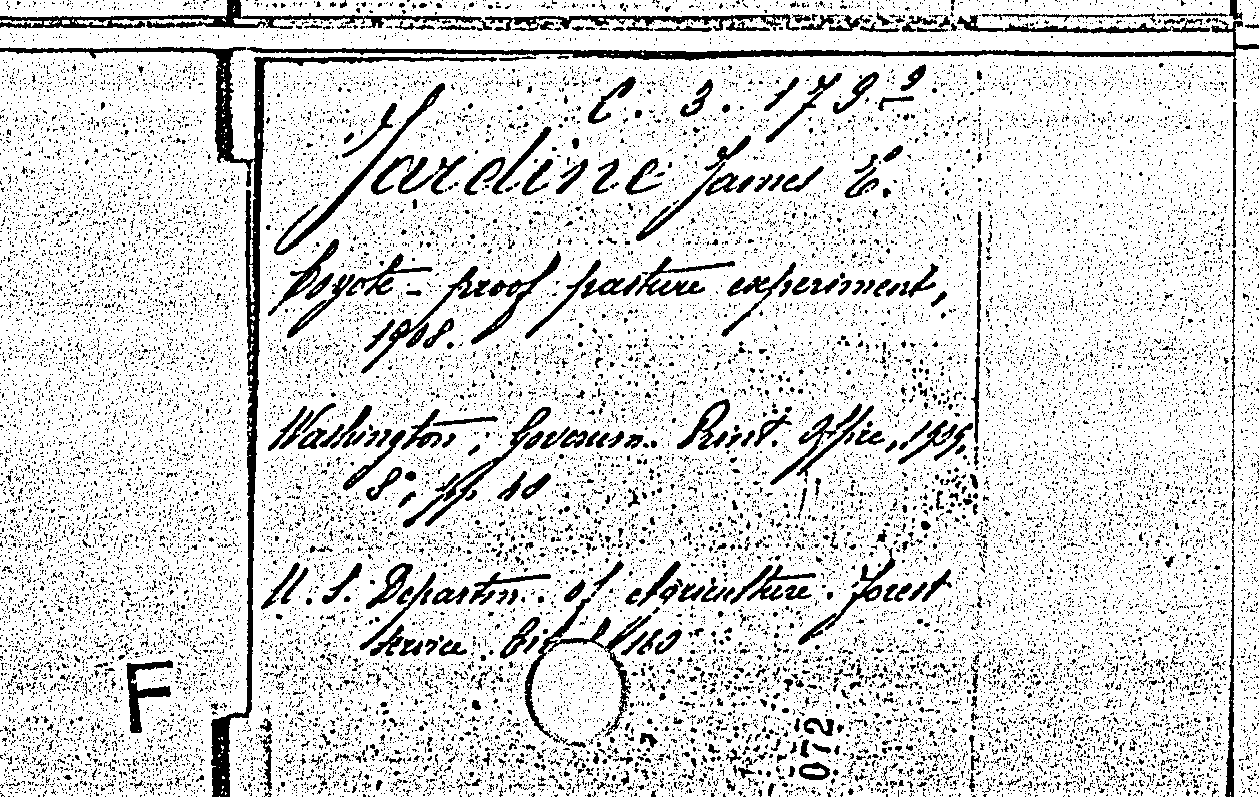 C. 3. 179²
Jardine James E.
Coyote-proof pasture experiment,
1908.
Washington, Governm. Print. Office, 1909.
8°, pp 40
U. S. Departm. of Agriculture. Forest
Service. 160
F
072